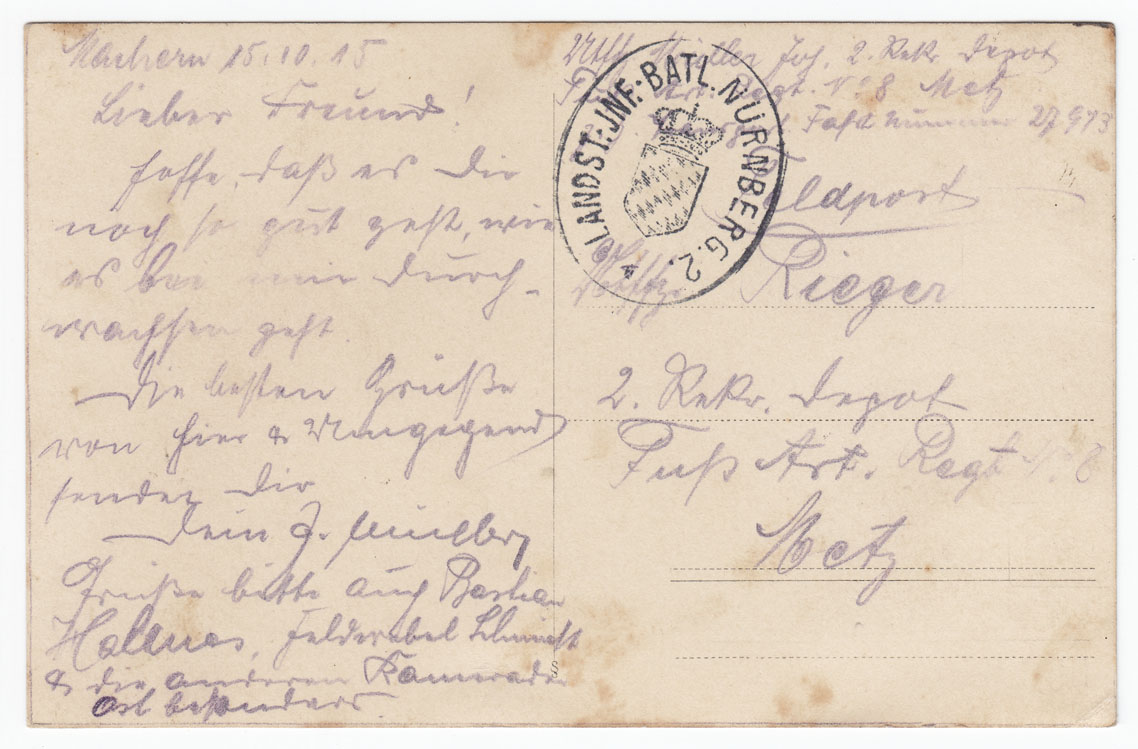 Machern 15.10.15
Lieber Freund!
Hoffe, daß es Dir
noch so gut geht, wie
es bei mir durch-
wachsen geht
Die besten Grüße
von hier & Umgegend
sendet Dir
Dein J.
Grüße bitte auch Bastian
Feldwebel
& die anderen Kameraden
besonders
Joh. 2. Rekr. Depot
Art. Regt. No 8 Metz
nummer 27973
LANDST.-INF.-BATL. NÜRNBERG.2.
Feldpost
Rieger
2. Rekr. Depot
Fuß Art. Regt No. 8
Metz